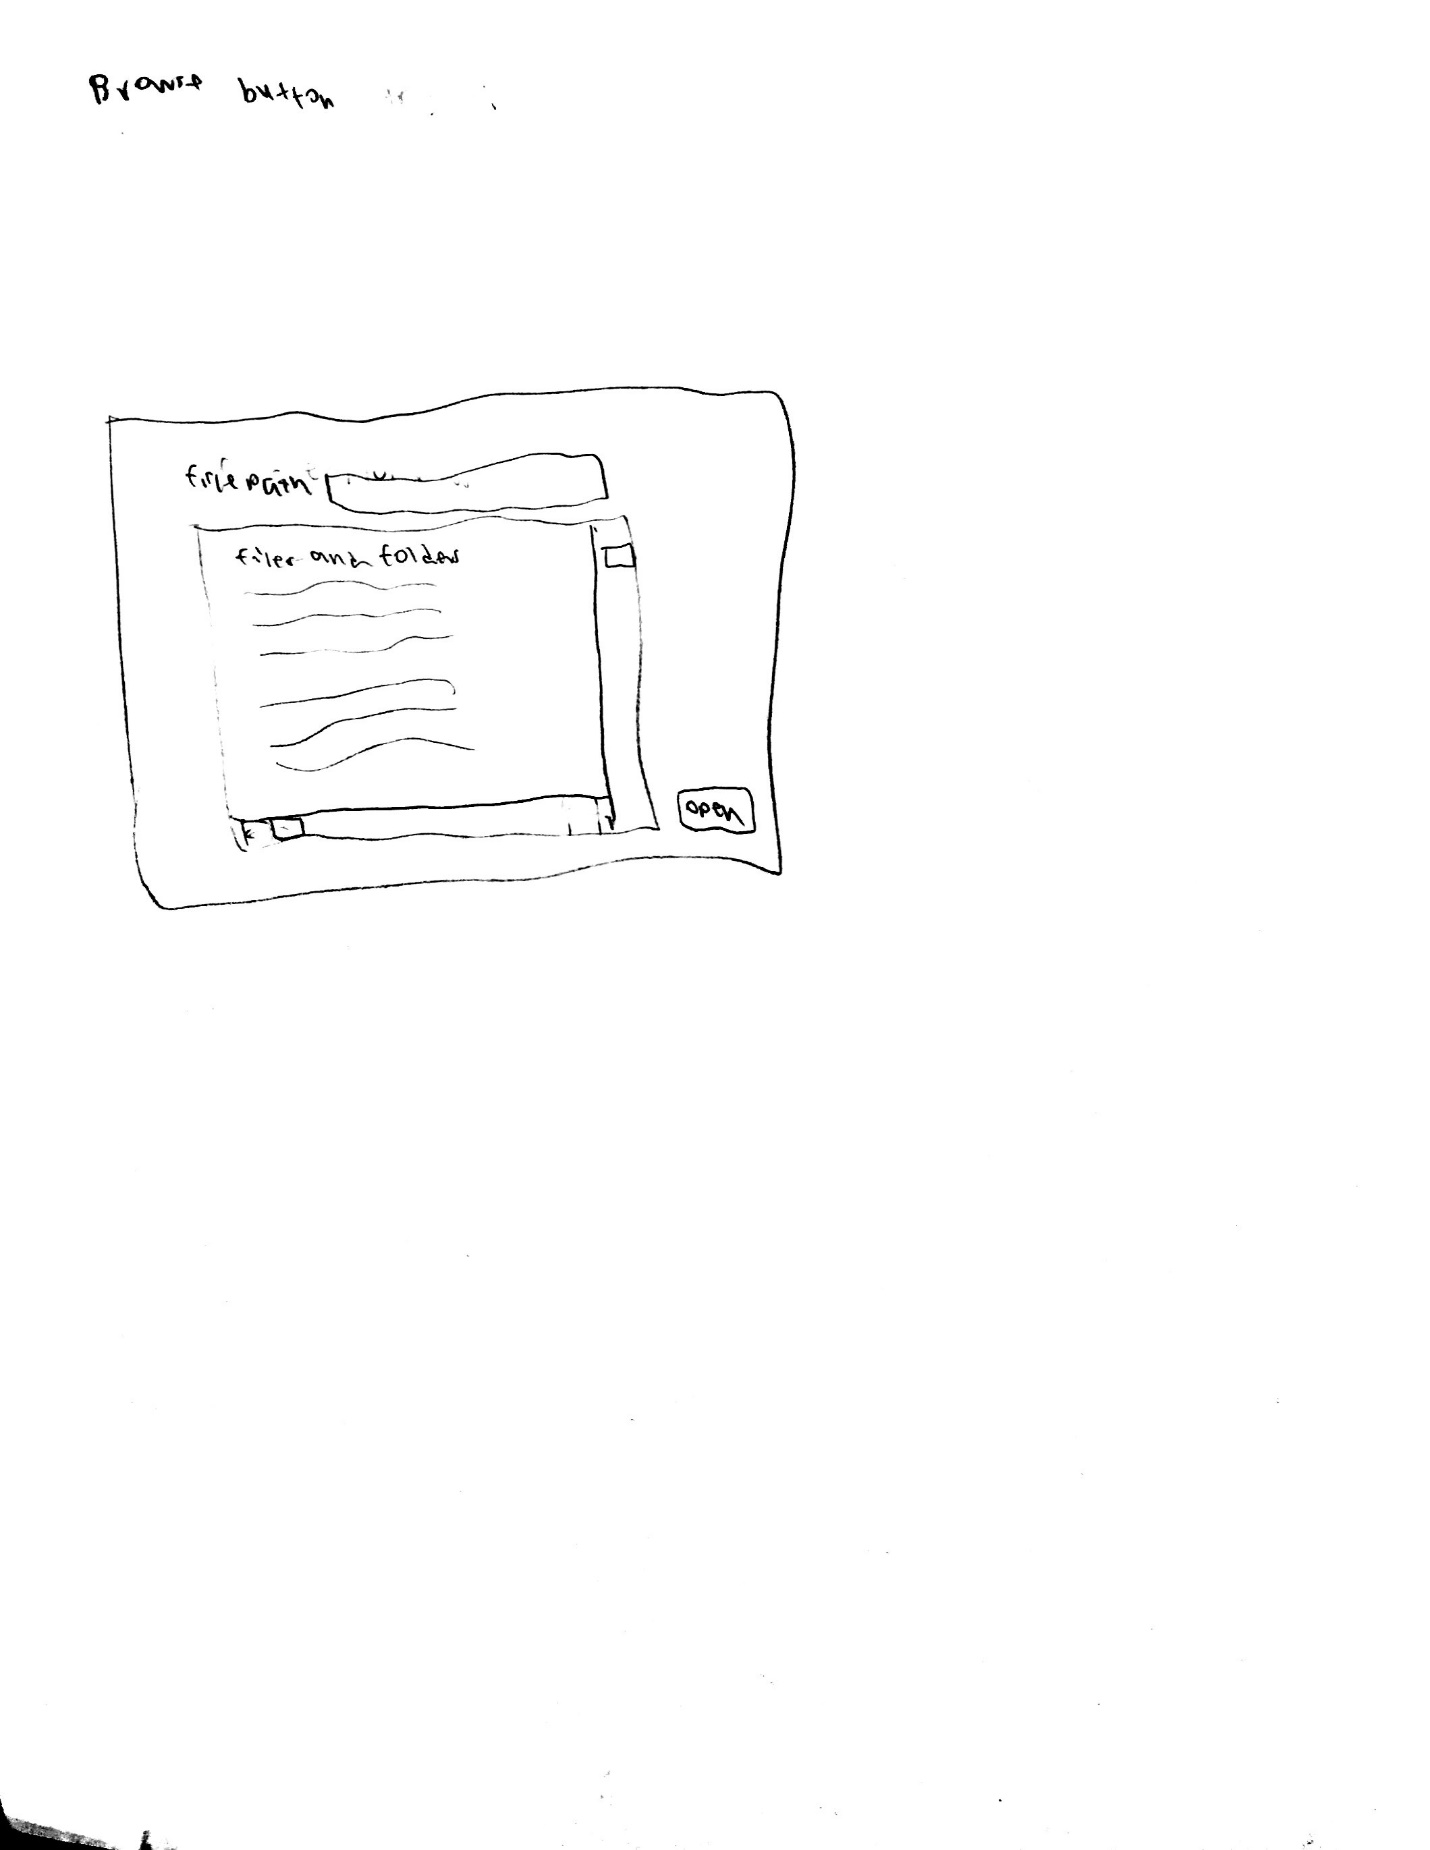 Browse button
file path
files and folders
open